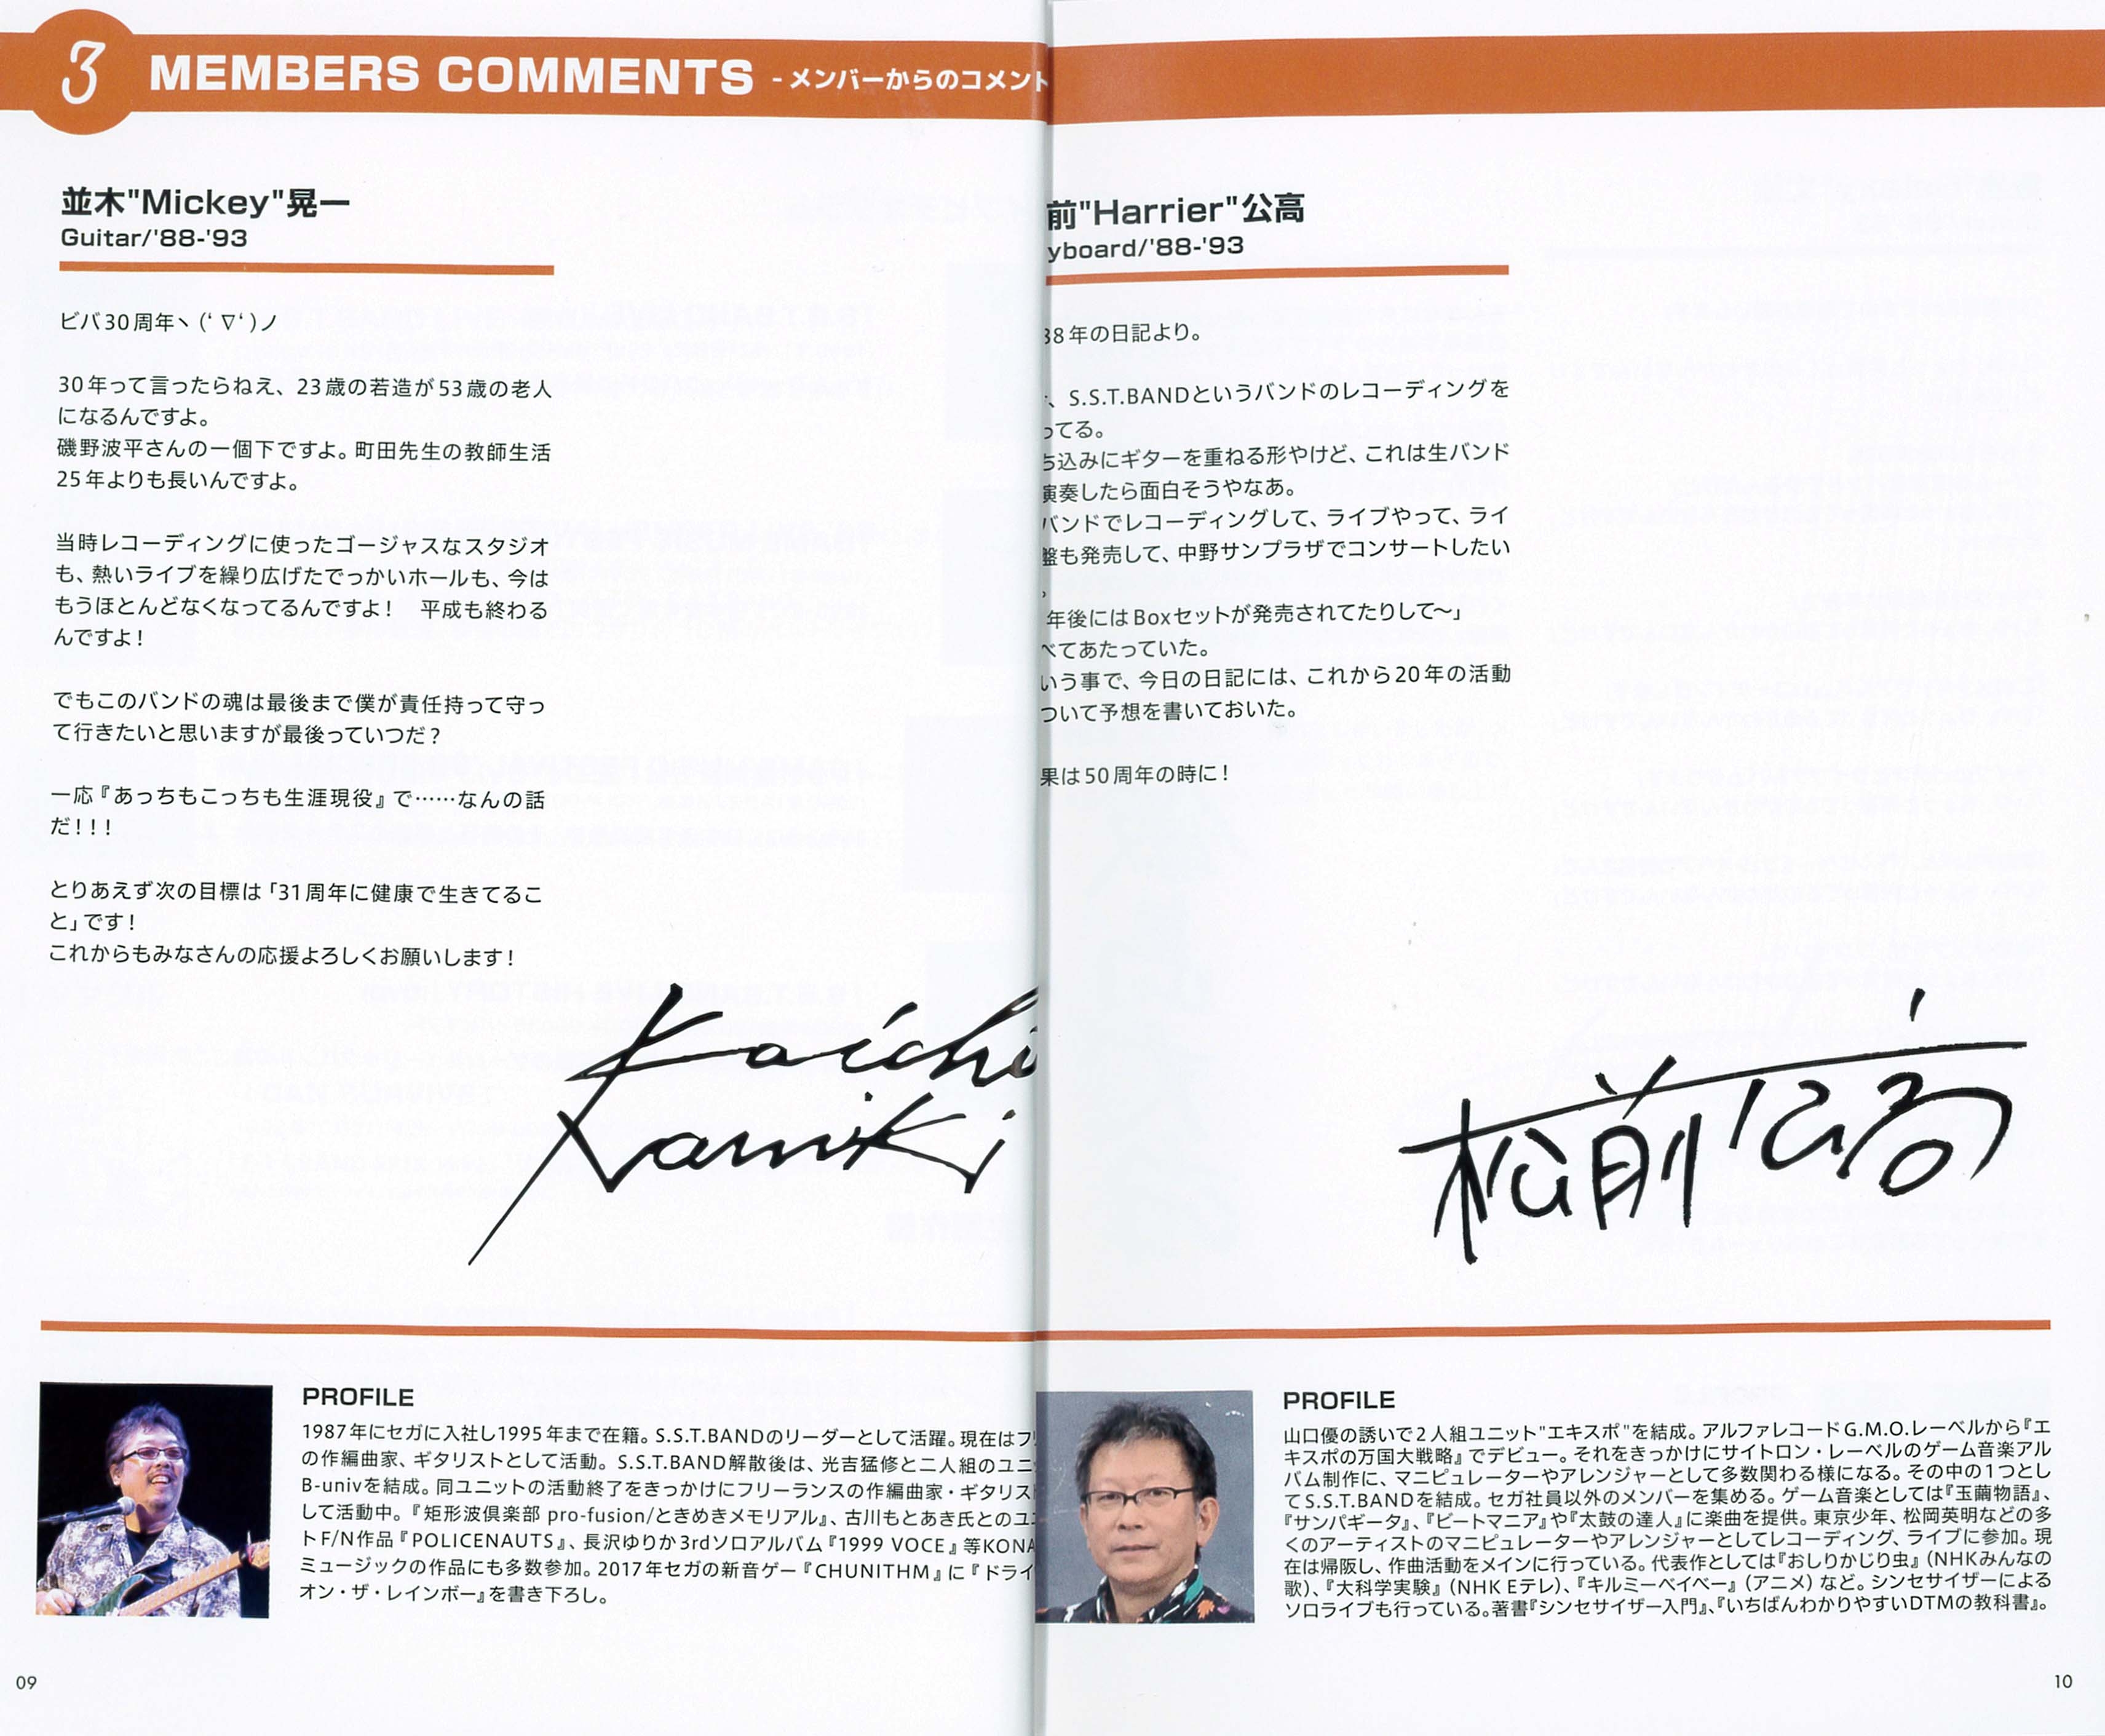 3 MEMBERS COMMENTS - メンバーからのコメント
並木"Mickey"晃一
Guitar/'88-'93
ビバ30周年ヽ(‘ ∇‘ )ノ
30年って言ったらねえ、23歳の若造が53歳の老人
になるんですよ。
磯野波平さんの一個下ですよ。町田先生の教師生活
25年よりも長いんですよ。
当時レコーディングに使ったゴージャスなスタジオ
も、熱いライブを繰り広げたでっかいホールも、今は
もうほとんどなくなってるんですよ! 平成も終わる
んですよ!
でもこのバンドの魂は最後まで僕が責任持って守っ
て行きたいと思いますが最後っていつだ?
一応『あっちもこっちも生涯現役』で……なんの話
だ!!!
とりあえず次の目標は「31周年に健康で生きてるこ
と」です!
これからもみなさんの応援よろしくお願いします!
Koichi
Namiki
PROFILE
1987年にセガに入社し1995年まで在籍。S.S.T.BANDのリーダーとして活躍。現在はフリ
の作編曲家、ギタリストとして活動。S.S.T.BAND解散後は、光吉猛修と二人組のユニ
B-univを結成。同ユニットの活動終了をきっかけにフリーランスの作編曲家・ギタリス
して活動中。『矩形波倶楽部 pro-fusion/ときめきメモリアル』、古川もとあき氏とのユニ
トF/N作品『POLICENAUTS』、長沢ゆりか3rdソロアルバム『1999 VOCE』等KONA
ミュージックの作品にも多数参加。2017年セガの新音ゲー『CHUNITHM』に『ドライ
オン・ザ・レインボー』を書き下ろし。
09
前"Harrier"公高
yboard/'88-'93
88年の日記より。
、S.S.T.BANDというバンドのレコーディングを
ってる。
ち込みにギターを重ねる形やけど、これは生バンド
演奏したら面白そうやなあ。
バンドでレコーディングして、ライブやって、ライ
盤も発売して、中野サンプラザでコンサートしたい
。
年後にはBoxセットが発売されてたりして〜」
べてあたっていた。
いう事で、今日の日記には、これから20年の活動
ついて予想を書いておいた。
果は50周年の時に!
松前公高
PROFILE
山口優の誘いで2人組ユニット"エキスポ"を結成。アルファレコードG.M.O.レーベルから『エ
キスポの万国大戦略』でデビュー。それをきっかけにサイトロン・レーベルのゲーム音楽アル
バム制作に、マニピュレーターやアレンジャーとして多数関わる様になる。その中の1つとし
てS.S.T.BANDを結成。セガ社員以外のメンバーを集める。ゲーム音楽としては『玉繭物語』、
『サンパギータ』、『ビートマニア』や『太鼓の達人』に楽曲を提供。東京少年、松岡英明などの多
くのアーティストのマニピュレーターやアレンジャーとしてレコーディング、ライブに参加。現
在は帰阪し、作曲活動をメインに行っている。代表作としては『おしりかじり虫』(NHKみんなの
歌)、『大科学実験』(NHK Eテレ)、『キルミーベイベー』(アニメ) など。シンセサイザーによる
ソロライブも行っている。著書『シンセサイザー入門』、『いちばんわかりやすいDTMの教科書』。
10